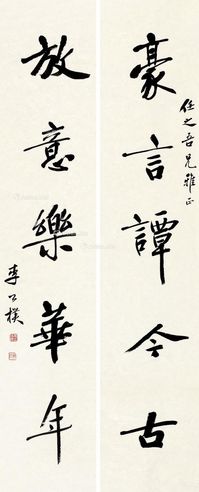 豪言譚今古
任之吾兄雅正
放意樂華年
李公樸